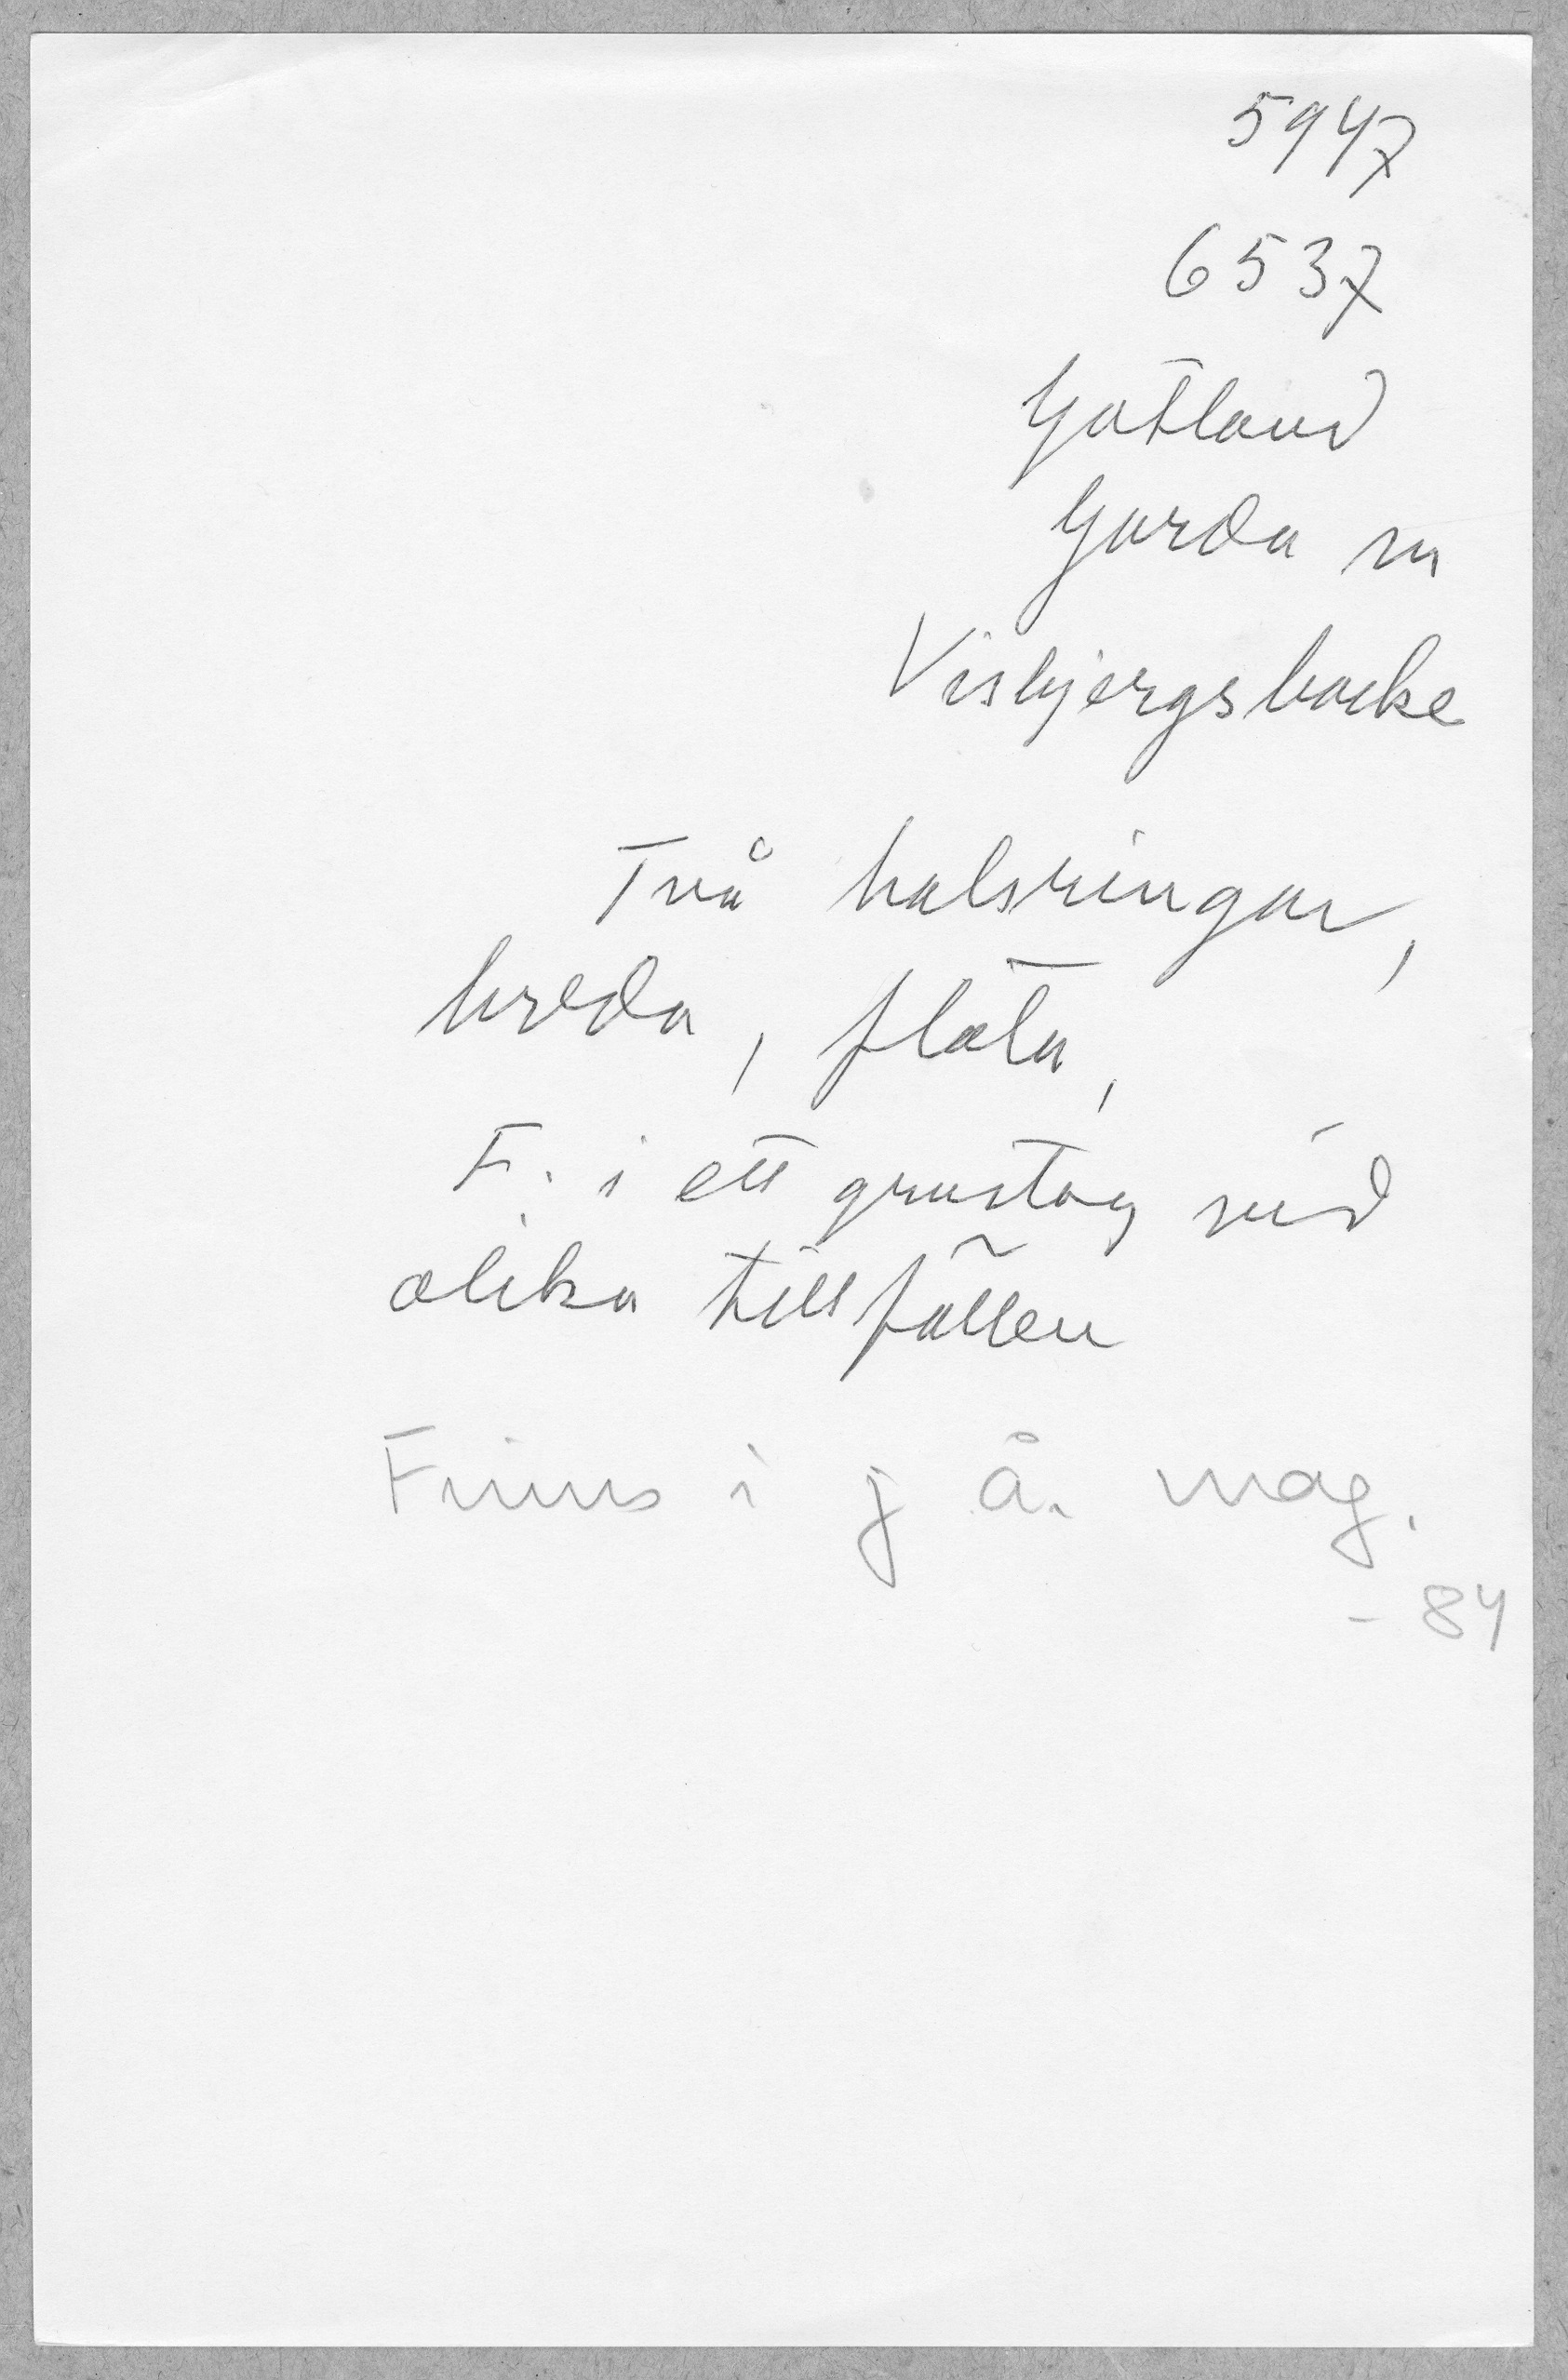 5947
6537
Gotland
Garda sn
Visbjergsbacke
Två halsringar,
breda, flata,
F. i ett grustag vid
olika tillfällen
Finns i j å. mag.
- 84